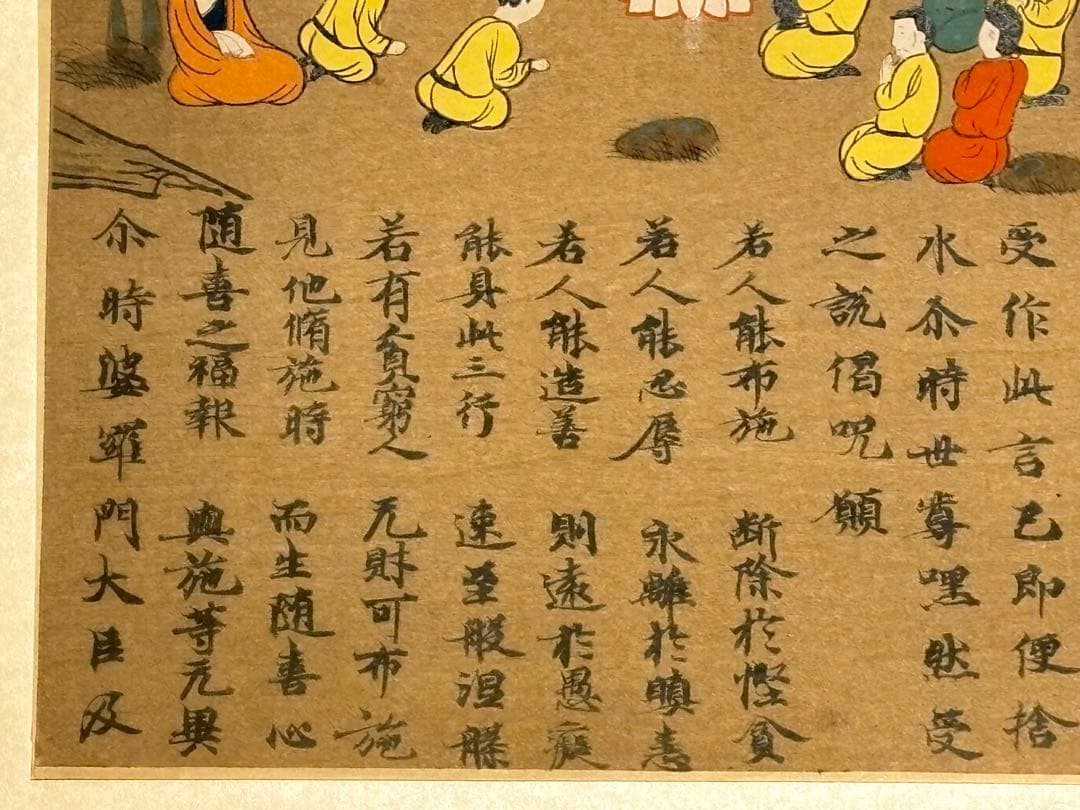 受作此言已即便捨
水尒時世尊嘿然受
之說偈呪願
若人能布施 断除於慳貪
若人能忍辱 永離於瞋恚
若人能造善 則遠於愚癡
能具此三行 速至般涅槃
若有貧窮人 无財可布施
見他脩施時 而生随喜心
随喜之福報 與施等无異
尒時婆羅門大臣及